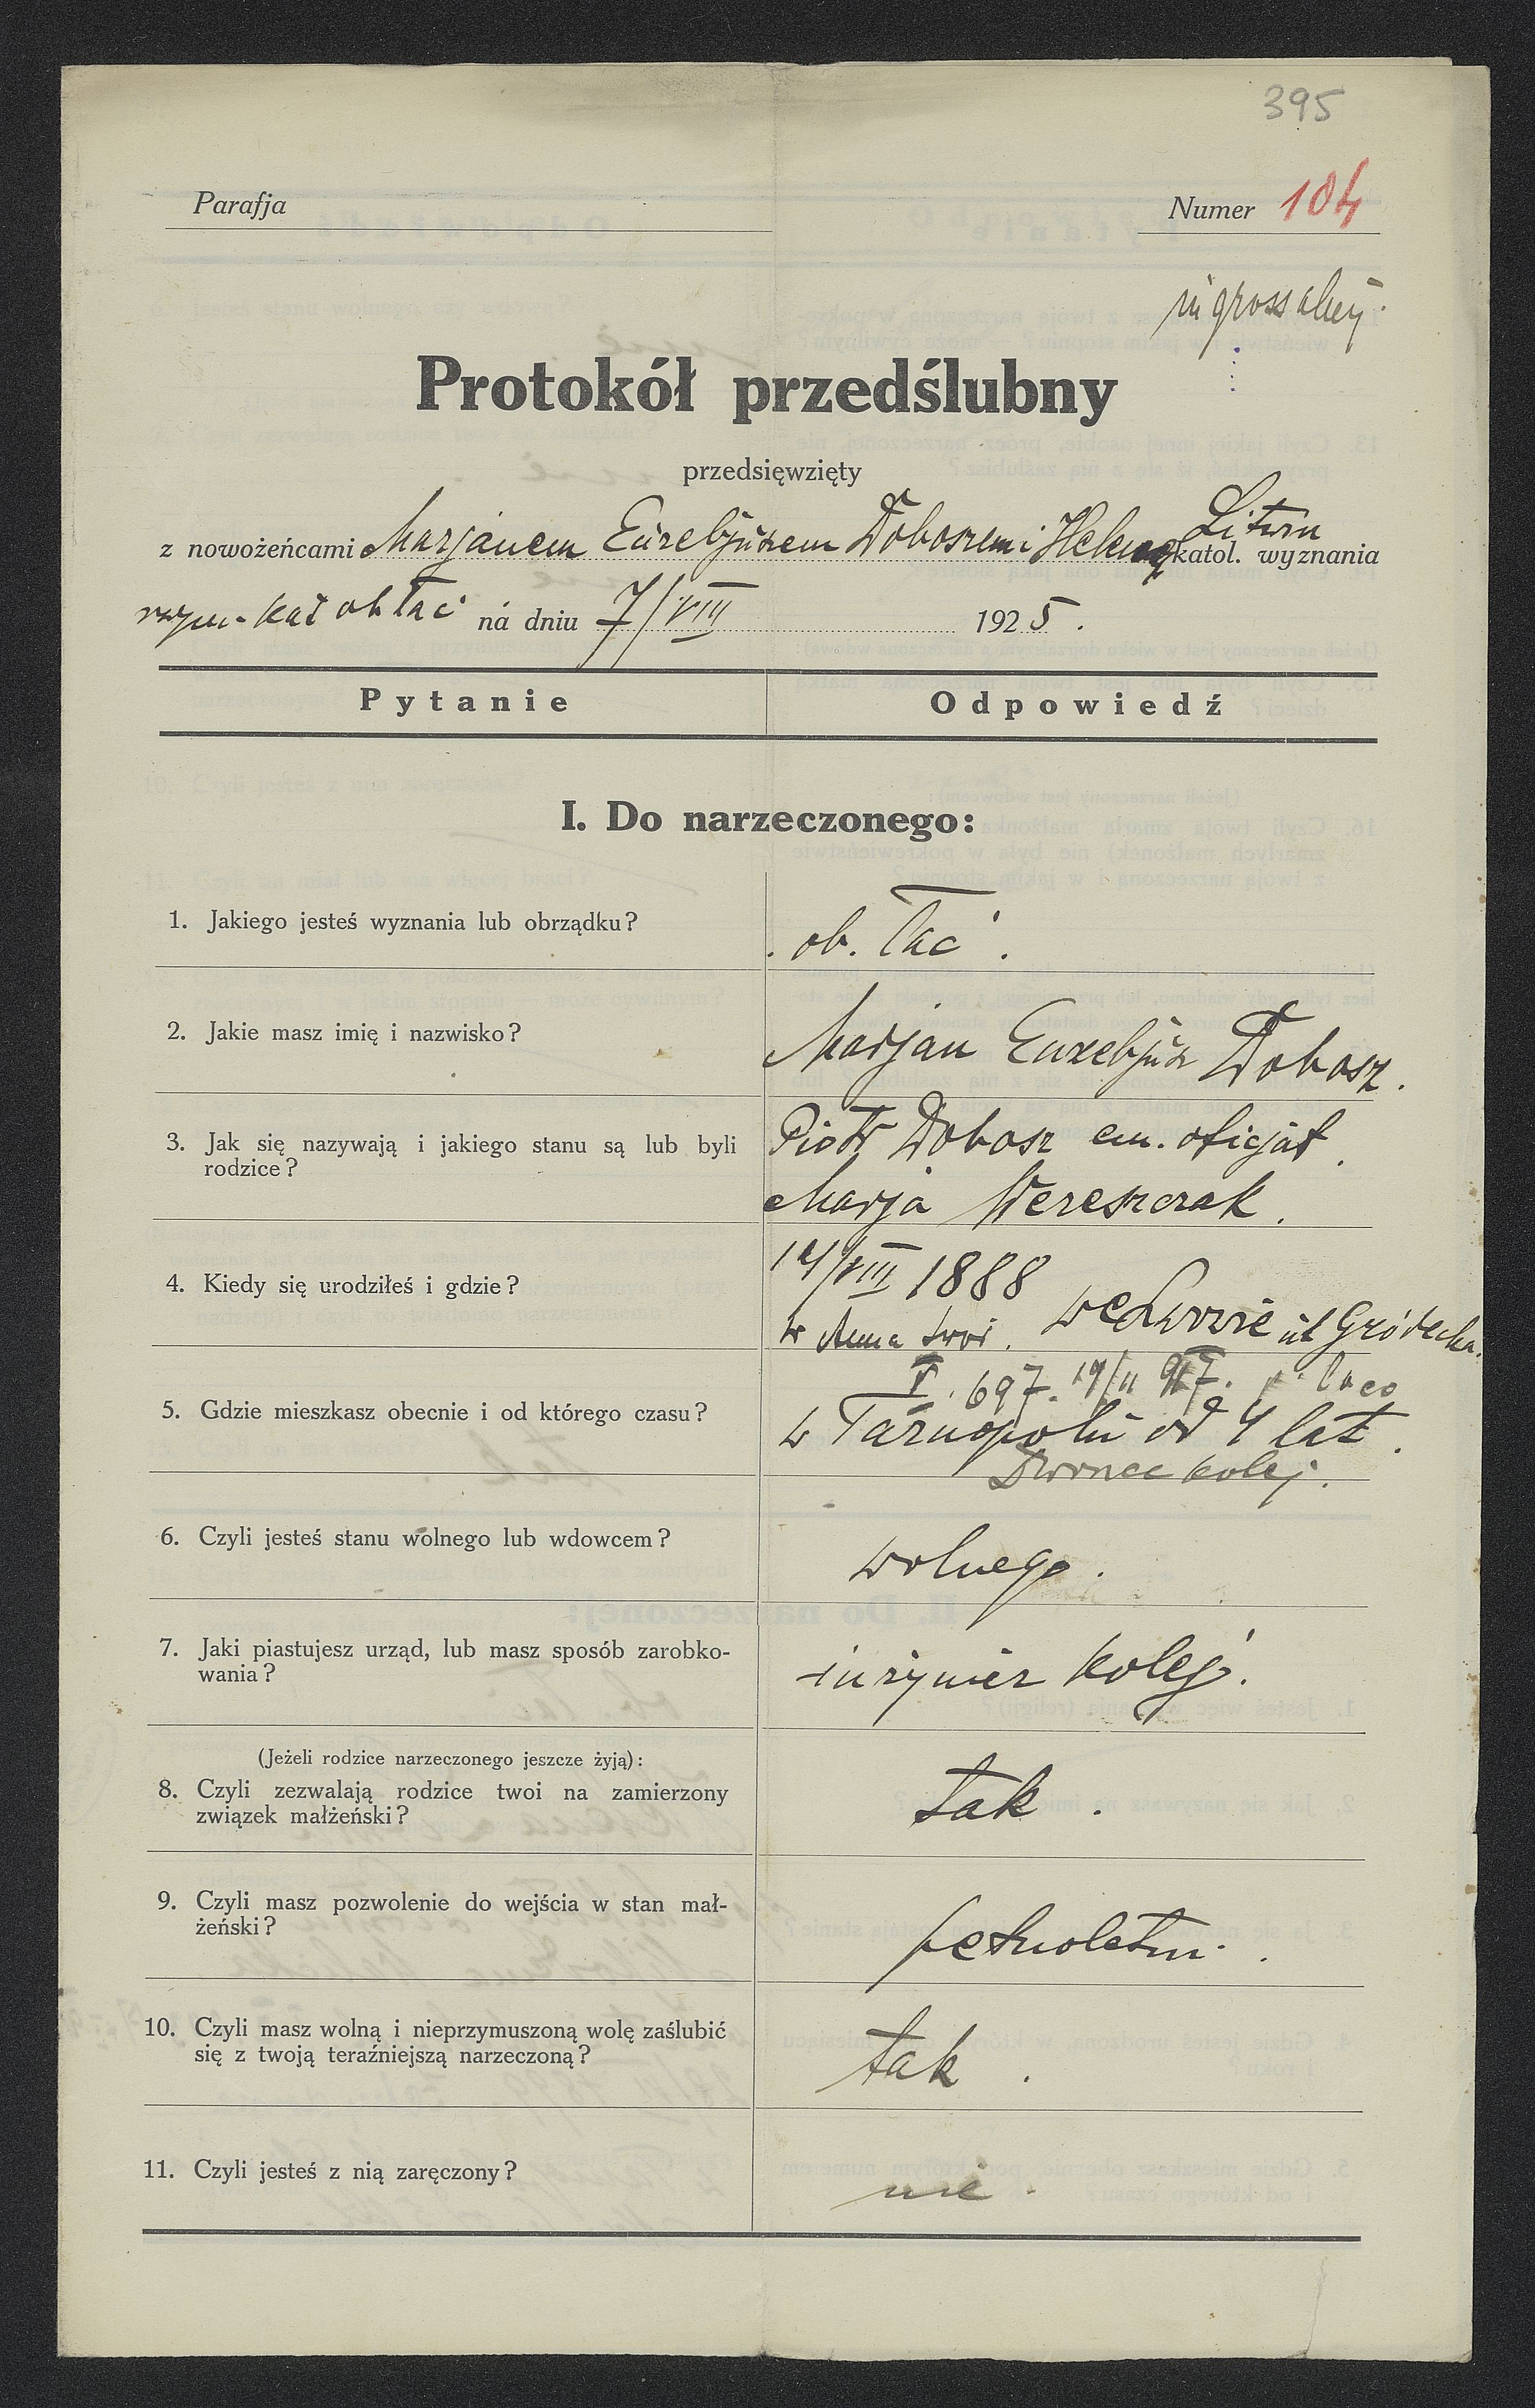 395
Parafja
Numer 104
Protokół przedślubny
przedsięwzięty
Litwin
z nowożeńcami Marjanem Euzebjuszem Doboszem i Heleną katol. wyznania
rzym-kat ob łać na dniu 7/VIII 1925.
Pytanie Odpowiedź
I. Do narzeczonego:
1. Jakiego jesteś wyznania lub obrządku?
ob. łać.
2. Jakie masz imię i nazwisko?
Marjan Euzebjusz Dobosz.
3. Jak się nazywają i jakiego stanu są lub byli
rodzice?
Piotr Dobosz em. oficjał.
Marja Wereszczak.
4. Kiedy się urodziłeś i gdzie?
14/VIII 1888
we Lwowie ul Gródecka.
V. 697. 19/II 917.
5. Gdzie mieszkasz obecnie i od którego czasu?
w Tarnopolu od 4 lat.
Dworzec kolej.
6. Czyli jesteś stanu wolnego lub wdowcem?
wolnego.
7. Jaki piastujesz urząd, lub masz sposób zarobko-
wania?
inżynier kolej.
(Jeżeli rodzice narzeczonego jeszcze żyją):
8. Czyli zezwalają rodzice twoi na zamierzony
związek małżeński?
tak.
9. Czyli masz pozwolenie do wejścia w stan mał-
żeński?
pełnoletni.
10. Czyli masz wolną i nieprzymuszoną wolę zaślubić
się z twoją teraźniejszą narzeczoną?
tak.
11. Czyli jesteś z nią zaręczony?
nie.